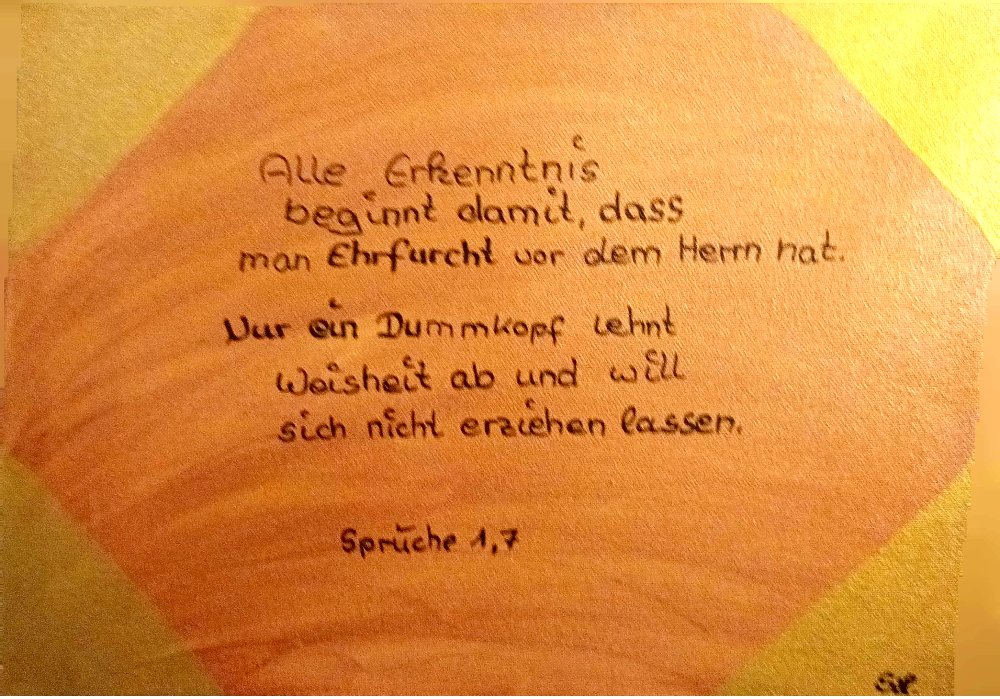 Alle Erkenntnis
beginnt damit, dass
man Ehrfurcht vor dem Herrn hat.
Nur ein Dummkopf lehnt
Weisheit ab und will
sich nicht erziehen lassen.
Sprüche 1,7